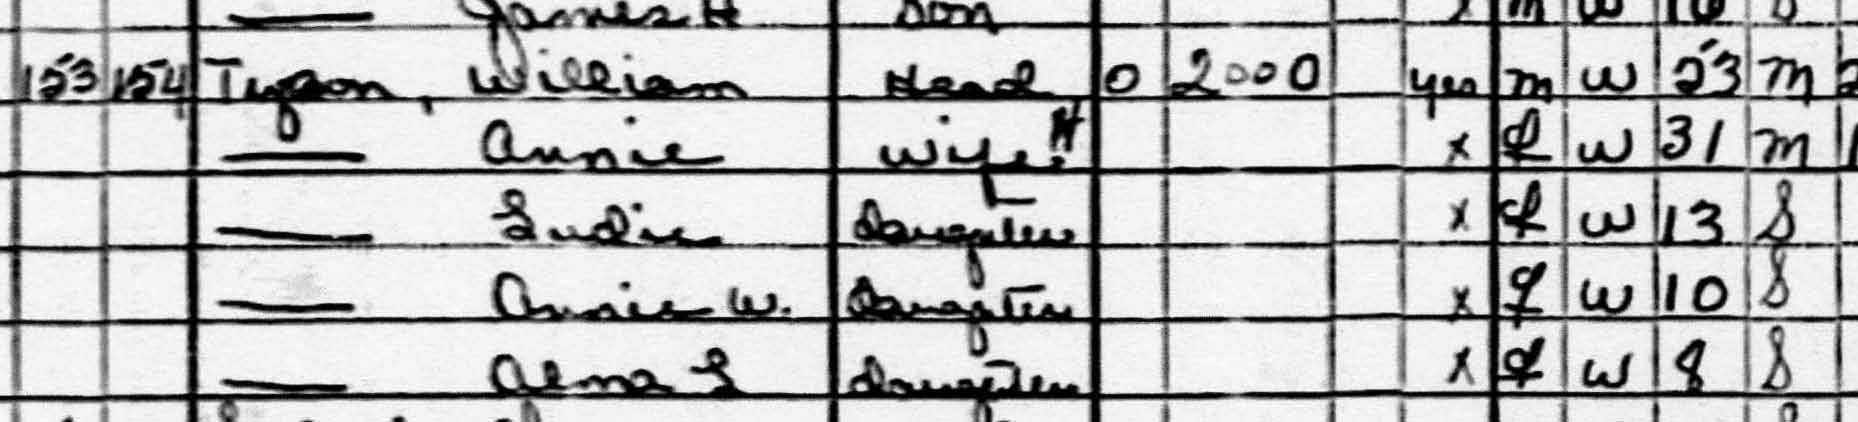 James H Son x m w 16 S
153 154 Tyson, William Head O 2000 yes m w 53 m 2
— Annie Wife H x f w 31 m 1
— Ludie Daughter x f w 13 S
— Annie W. Daughter x f w 10 S
— Alma L Daughter x f w 8 S